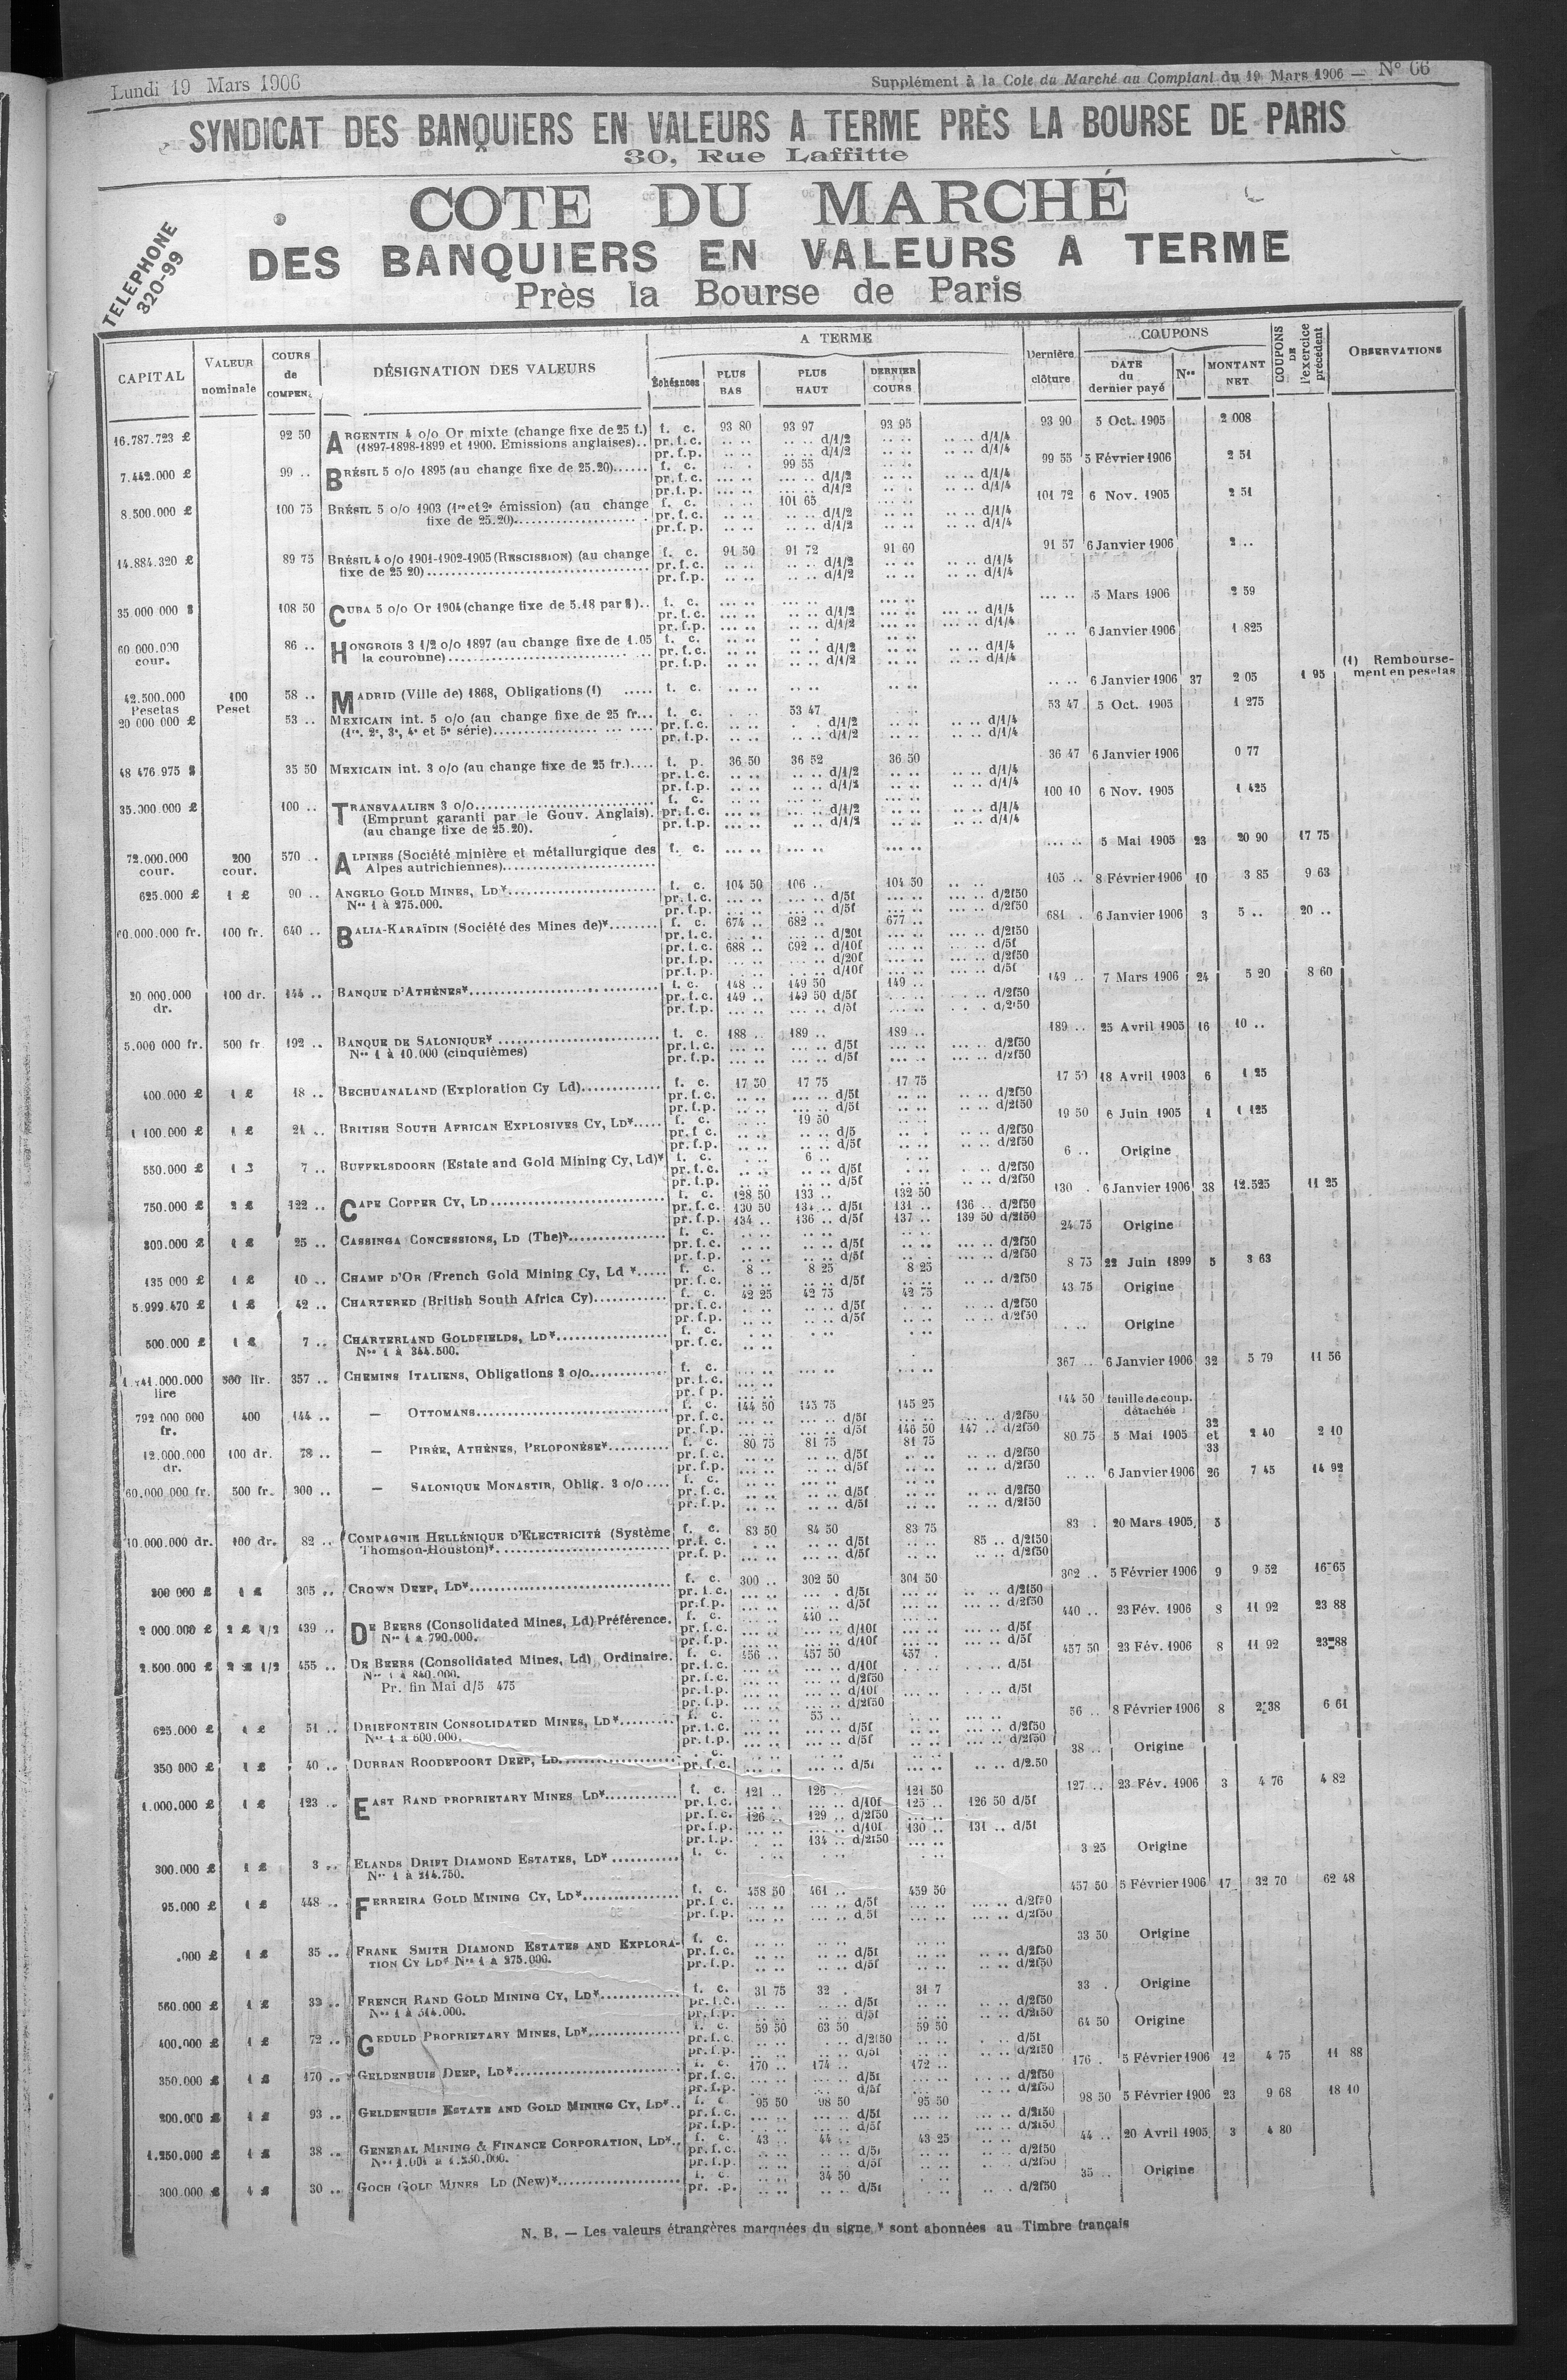 Lundi 19 Mars 1906
Supplément à la Cote du Marché au Comptant du 19 Mars 1906 — N° 66
SYNDICAT DES BANQUIERS EN VALEURS A TERME PRÈS LA BOURSE DE PARIS
30, Rue Laffitte
TELEPHONE
320-99
COTE DU MARCHÉ
DES BANQUIERS EN VALEURS A TERME
Près la Bourse de Paris
CAPITAL VALEUR nominale COURS de COMPEN. DÉSIGNATION DES VALEURS A TERME Échéances PLUS BAS PLUS HAUT DERNIER COURS Dernière clôture COUPONS DATE du dernier payé Nos MONTANT NET COUPONS DE l'exercice précédent OBSERVATIONS
16.787.723 £ 92 50 ARGENTIN 4 o/o Or mixte (change fixe de 25 f.) f. c. 93 80 93 97 93 95 93 90 5 Oct. 1905 2 008
(1897-1898-1899 et 1900. Emissions anglaises).. pr.f.c. .. .. .. .. d/1/2 .. .. .. .. d/1/4
pr.f.p. .. .. .. .. d/1/2 .. .. .. .. d/1/4
7.442.000 £ 99 .. BRÉSIL 5 o/o 1895 (au change fixe de 25.20) f. c. 99 55 99 55 5 Février 1906 2 51
pr.f.c. d/1/2 d/1/4
pr.f.p. d/1/2 d/1/4
8.500.000 £ 100 75 BRÉSIL 5 o/o 1903 (1re et 2e émission) (au change fixe de 25.20) f. c. 101 65 101 72 6 Nov. 1905 2 51
pr.f.c. d/1/2 d/1/4
pr.f.p. d/1/2 d/1/4
14.884.320 £ 89 75 BRÉSIL 4 o/o 1901-1902-1905 (RESCISSION) (au change fixe de 25 20) f. c. 91 50 91 72 91 60 91 57 6 Janvier 1906 2 ..
pr.f.c. d/1/2 d/1/4
pr.f.p. d/1/2 d/1/4
35 000 000 $ 108 50 CUBA 5 o/o Or 1904 (change fixe de 5.18 par $) f. c. 5 Mars 1906 2 59
pr.f.c. d/1/2 d/1/4
pr.f.p. d/1/2 d/1/4
60 000.000 cour. 86 .. HONGROIS 3 1/2 o/o 1897 (au change fixe de 1.05 la couronne) f. c. 6 Janvier 1906 1 825
pr.f.c. d/1/2 d/1/4
pr.f.p. d/1/2 d/1/4
42.500.000 Pesetas 100 Peset 58 .. MADRID (Ville de) 1868, Obligations (1) f. c. 6 Janvier 1906 37 2 05 1 95 (1) Remboursement en pesetas
20 000 000 £ 53 .. MEXICAIN int. 5 o/o (au change fixe de 25 fr. f. c. 53 47 53 47 5 Oct. 1905 1 275
(1re, 2e, 3e, 4e et 5e série) pr.f.c. d/1/2 d/1/4
pr.f.p. d/1/2 d/1/4
48 476 975 $ 35 50 MEXICAIN int. 3 o/o (au change fixe de 25 fr.) f. p. 36 50 36 52 36 50 36 47 6 Janvier 1906 0 77
pr.f.c. d/1/2 d/1/4
pr.f.p. d/1/2 d/1/4
35.000.000 £ 100 .. TRANSVAALIEN 3 o/o f. c. 100 10 6 Nov. 1905 1 425
(Emprunt garanti par le Gouv. Anglais). pr.f.c. d/1/2 d/1/4
(au change fixe de 25.20). pr.f.p. d/1/2 d/1/4
72.000.000 cour. 200 cour. 570 .. ALPINES (Société minière et métallurgique des Alpes autrichiennes) f. c. 5 Mai 1905 23 20 90 17 75
625.000 £ 1 £ 90 .. ANGELO GOLD MINES, LD* f. c. 104 50 106 .. 104 50 105 .. 8 Février 1906 10 3 85 9 63
Nos 1 à 275.000. pr.f.c. d/5f d/2f50
pr.f.p. d/5f d/2f50
0.000.000 fr. 100 fr. 640 .. BALIA-KARAÏDIN (Société des Mines de)* f. c. 674 .. 682 .. 677 .. 681 . 6 Janvier 1906 3 5 .. 20 ..
pr.f.c. d/20f d/2f50
pr.f.c. 688 .. 692 .. d/10f d/5f
pr.f.p. d/20f d/2f50
pr.f.p. d/10f d/5f
20.000.000 dr. 100 dr. 144 .. BANQUE D'ATHÈNES* f. c. 148 .. 149 50 149 .. 149 .. 7 Mars 1906 24 5 20 8 60
pr.f.c. 149 .. 149 50 d/5f d/2f50
pr.f.p. d/5f d/2f50
5.000 000 fr. 500 fr. 192 .. BANQUE DE SALONIQUE* f. c. 188 .. 189 .. 189 .. 189 .. 25 Avril 1905 16 10 ..
Nos 1 à 10.000 (cinquièmes) pr.f.c. d/5f d/2f50
pr.f.p. d/5f d/2f50
400.000 £ 1 £ 18 .. BECHUANALAND (Exploration Cy Ld) f. c. 17 50 17 75 17 75 17 50 18 Avril 1903 6 1 25
pr.f.c. d/5f d/2f50
pr.f.p. d/5f d/2f50
1 100.000 £ 1 £ 21 .. BRITISH SOUTH AFRICAN EXPLOSIVES CY, LD* f. c. 19 50 19 50 6 Juin 1905 1 1 125
pr.f.c. d/5 d/2f50
pr.f.p. d/5f d/2f50
550.000 £ 7 .. BUFFELSDOORN (Estate and Gold Mining Cy, Ld)* f. c. 6 .. 6 .. Origine
pr.f.c. d/5f d/2f50
pr.f.p. d/5f d/2f50
750.000 £ 2 £ 122 .. CAPE COPPER CY, LD f. c. 128 50 133 .. 132 50 130 . 6 Janvier 1906 38 12.525 11 25
pr.f.c. 130 50 134 .. d/5f 131 .. 136 .. d/2f50
pr.f.p. 134 .. 136 .. d/5f 137 .. 139 50 d/2f50
300.000 £ 1 £ 25 .. CASSINGA CONCESSIONS, LD (The)* f. c. 24 75 Origine
pr.f.c. d/5f d/2f50
pr.f.p. d/5f d/2f50
135 000 £ 1 £ 10 .. CHAMP D'OR (French Gold Mining Cy, Ld * f. c. 8 .. 8 25 8 25 8 75 22 Juin 1899 5 3 63
pr.f.c. d/5f d/2f50
5.999.470 £ 1 £ 42 .. CHARTERED (British South Africa Cy) f. c. 42 25 42 75 42 75 43 75 Origine
pr.f.c. d/5f d/2f50
pr.f.p. d/5f d/2f50
500.000 £ 1 £ 7 .. CHARTERLAND GOLDFIELDS, LD* f. c. Origine
Nos 1 à 344.500. pr.f.c.
.000.000 lire 500 lir. 357 .. CHEMINS ITALIENS, Obligations 3 o/o f. c. 367 .. 6 Janvier 1906 32 5 79 11 56
pr.f.c.
pr.f.p.
792 000 000 fr. 400 144 .. — OTTOMANS f. c. 144 50 145 75 145 25 144 50 feuille de coup. détachée
pr.f.c. d/5f d/2f50
pr.f.p. d/5f 146 50 147 .. d/2f50
12.000.000 dr. 100 dr. 78 .. — PIRÉE, ATHÈNES, PELOPONÈSE* f. c. 80 75 81 75 81 75 80 75 5 Mai 1905 32 et 33 2 40 2 10
pr.f.c. d/5f d/2f50
pr.f.p. d/5f d/2f50
60.000 000 fr. 500 fr. 300 .. — SALONIQUE MONASTIR, Oblig. 3 o/o f. c. 6 Janvier 1906 26 7 45 14 92
pr.f.c. d/5f d/2f50
pr.f.p. d/5f d/2f50
10.000.000 dr. 100 dr. 82 .. COMPAGNIE HELLÉNIQUE D'ELECTRICITÉ (Système Thomson-Houston)* f. c. 83 50 84 50 83 75 83 . 20 Mars 1905 5
pr.f.c. d/5f 85 .. d/2f50
pr.f.p. d/5f d/2f50
300 000 £ 1 £ 305 .. CROWN DEEP, LD* f. c. 300 .. 302 50 301 50 302 .. 5 Février 1906 9 9 52 16 65
pr.f.c. d/5f d/2f50
pr.f.p. d/5f d/2f50
2 000.000 £ 2 £ 1/2 439 .. DE BEERS (Consolidated Mines, Ld) Préférence. f. c. 440 .. 440 .. 23 Fév. 1906 8 11 92 23 88
Nos 1 à 790.000. pr.f.c. d/10f d/5f
pr.f.p. d/10f d/5f
2.500.000 £ 2 £ 1/2 455 .. DE BEERS (Consolidated Mines, Ld) Ordinaire. f. c. 456 .. 457 50 457 . 457 50 23 Fév. 1906 8 11 92 23 88
Nos 1 à 840.000. pr.f.c. d/10f d/5f
Pr. fin Mai d/5 475 pr.f.c. d/2f50
pr.f.p. d/10f d/5f
pr.f.p. d/2f50
625.000 £ 1 £ 51 .. DRIEFONTEIN CONSOLIDATED MINES, LD* f. c. 55 .. 56 .. 8 Février 1906 8 2 38 6 61
Nos 1 à 600.000. pr.f.c. d/5f d/2f50
pr.f.p. d/5f d/2f50
350 000 £ 1 £ 40 .. DURBAN ROODEPOORT DEEP, LD f. c. 38 .. Origine
pr.f.c. d/5f d/2.50
1.000.000 £ 1 £ 123 .. EAST RAND PROPRIETARY MINES, LD* f. c. 121 .. 126 .. 121 50 127 .. 23 Fév. 1906 3 4 76 4 82
pr.f.c. d/10f 125 .. 126 50 d/5f
pr.f.c. 126 .. 129 .. d/2f50
pr.f.p. d/10f 130 .. 131 .. d/5f
pr.f.p. 134 .. d/2f50
300.000 £ 1 £ 3 .. ELANDS DRIFT DIAMOND ESTATES, LD* f. c. 3 25 Origine
Nos 1 à 214.750.
95.000 £ 1 £ 448 .. FERREIRA GOLD MINING CY, LD* f. c. 458 50 461 .. 459 50 457 50 5 Février 1906 17 32 70 62 48
pr.f.c. d/5f d/2f50
pr.f.p. d/5f d/2f50
.000 £ 1 £ 35 .. FRANK SMITH DIAMOND ESTATES AND EXPLORATION CY LD* Nos 1 à 275.000. f. c. 33 50 Origine
pr.f.c. d/5f d/2f50
pr.f.p. d/5f d/2f50
560.000 £ 1 £ 33 .. FRENCH RAND GOLD MINING CY, LD* f. c. 31 75 32 . 31 7 33 . Origine
Nos 1 à 514.000. pr.f.c. d/5f d/2f50
pr.f.p. d/5f d/2f50
400.000 £ 1 £ 72 .. GEDULD PROPRIETARY MINES, LD* f. c. 59 50 63 50 59 50 64 50 Origine
pr.f.c. d/2f50 d/5f
pr.f.p. d/5f d/2f50
350.000 £ 1 £ 170 .. GELDENHUIS DEEP, LD* f. c. 170 .. 174 .. 172 .. 176 . 5 Février 1906 12 4 75 11 88
pr.f.c. d/5f d/2f50
pr.f.p. d/5f d/2f50
200.000 £ 1 £ 93 .. GELDENHUIS ESTATE AND GOLD MINING CY, LD* f. c. 95 50 98 50 95 50 98 50 5 Février 1906 23 9 68 18 10
pr.f.c. d/5f d/2f50
pr.f.p. d/5f d/2f50
1.250.000 £ 1 £ 38 .. GENERAL MINING & FINANCE CORPORATION, LD* f. c. 43 .. 44 .. 43 25 44 .. 20 Avril 1905 3 4 80
Nos 1.001 à 1.250.000. pr.f.c. d/5f d/2f50
pr.f.p. d/5f d/2f50
300 000 £ 30 .. GOCH GOLD MINES LD (New)* f. c. 34 50 35 .. Origine
pr. .p. d/5f d/2f50
N. B. — Les valeurs étrangères marquées du signe * sont abonnées au Timbre français